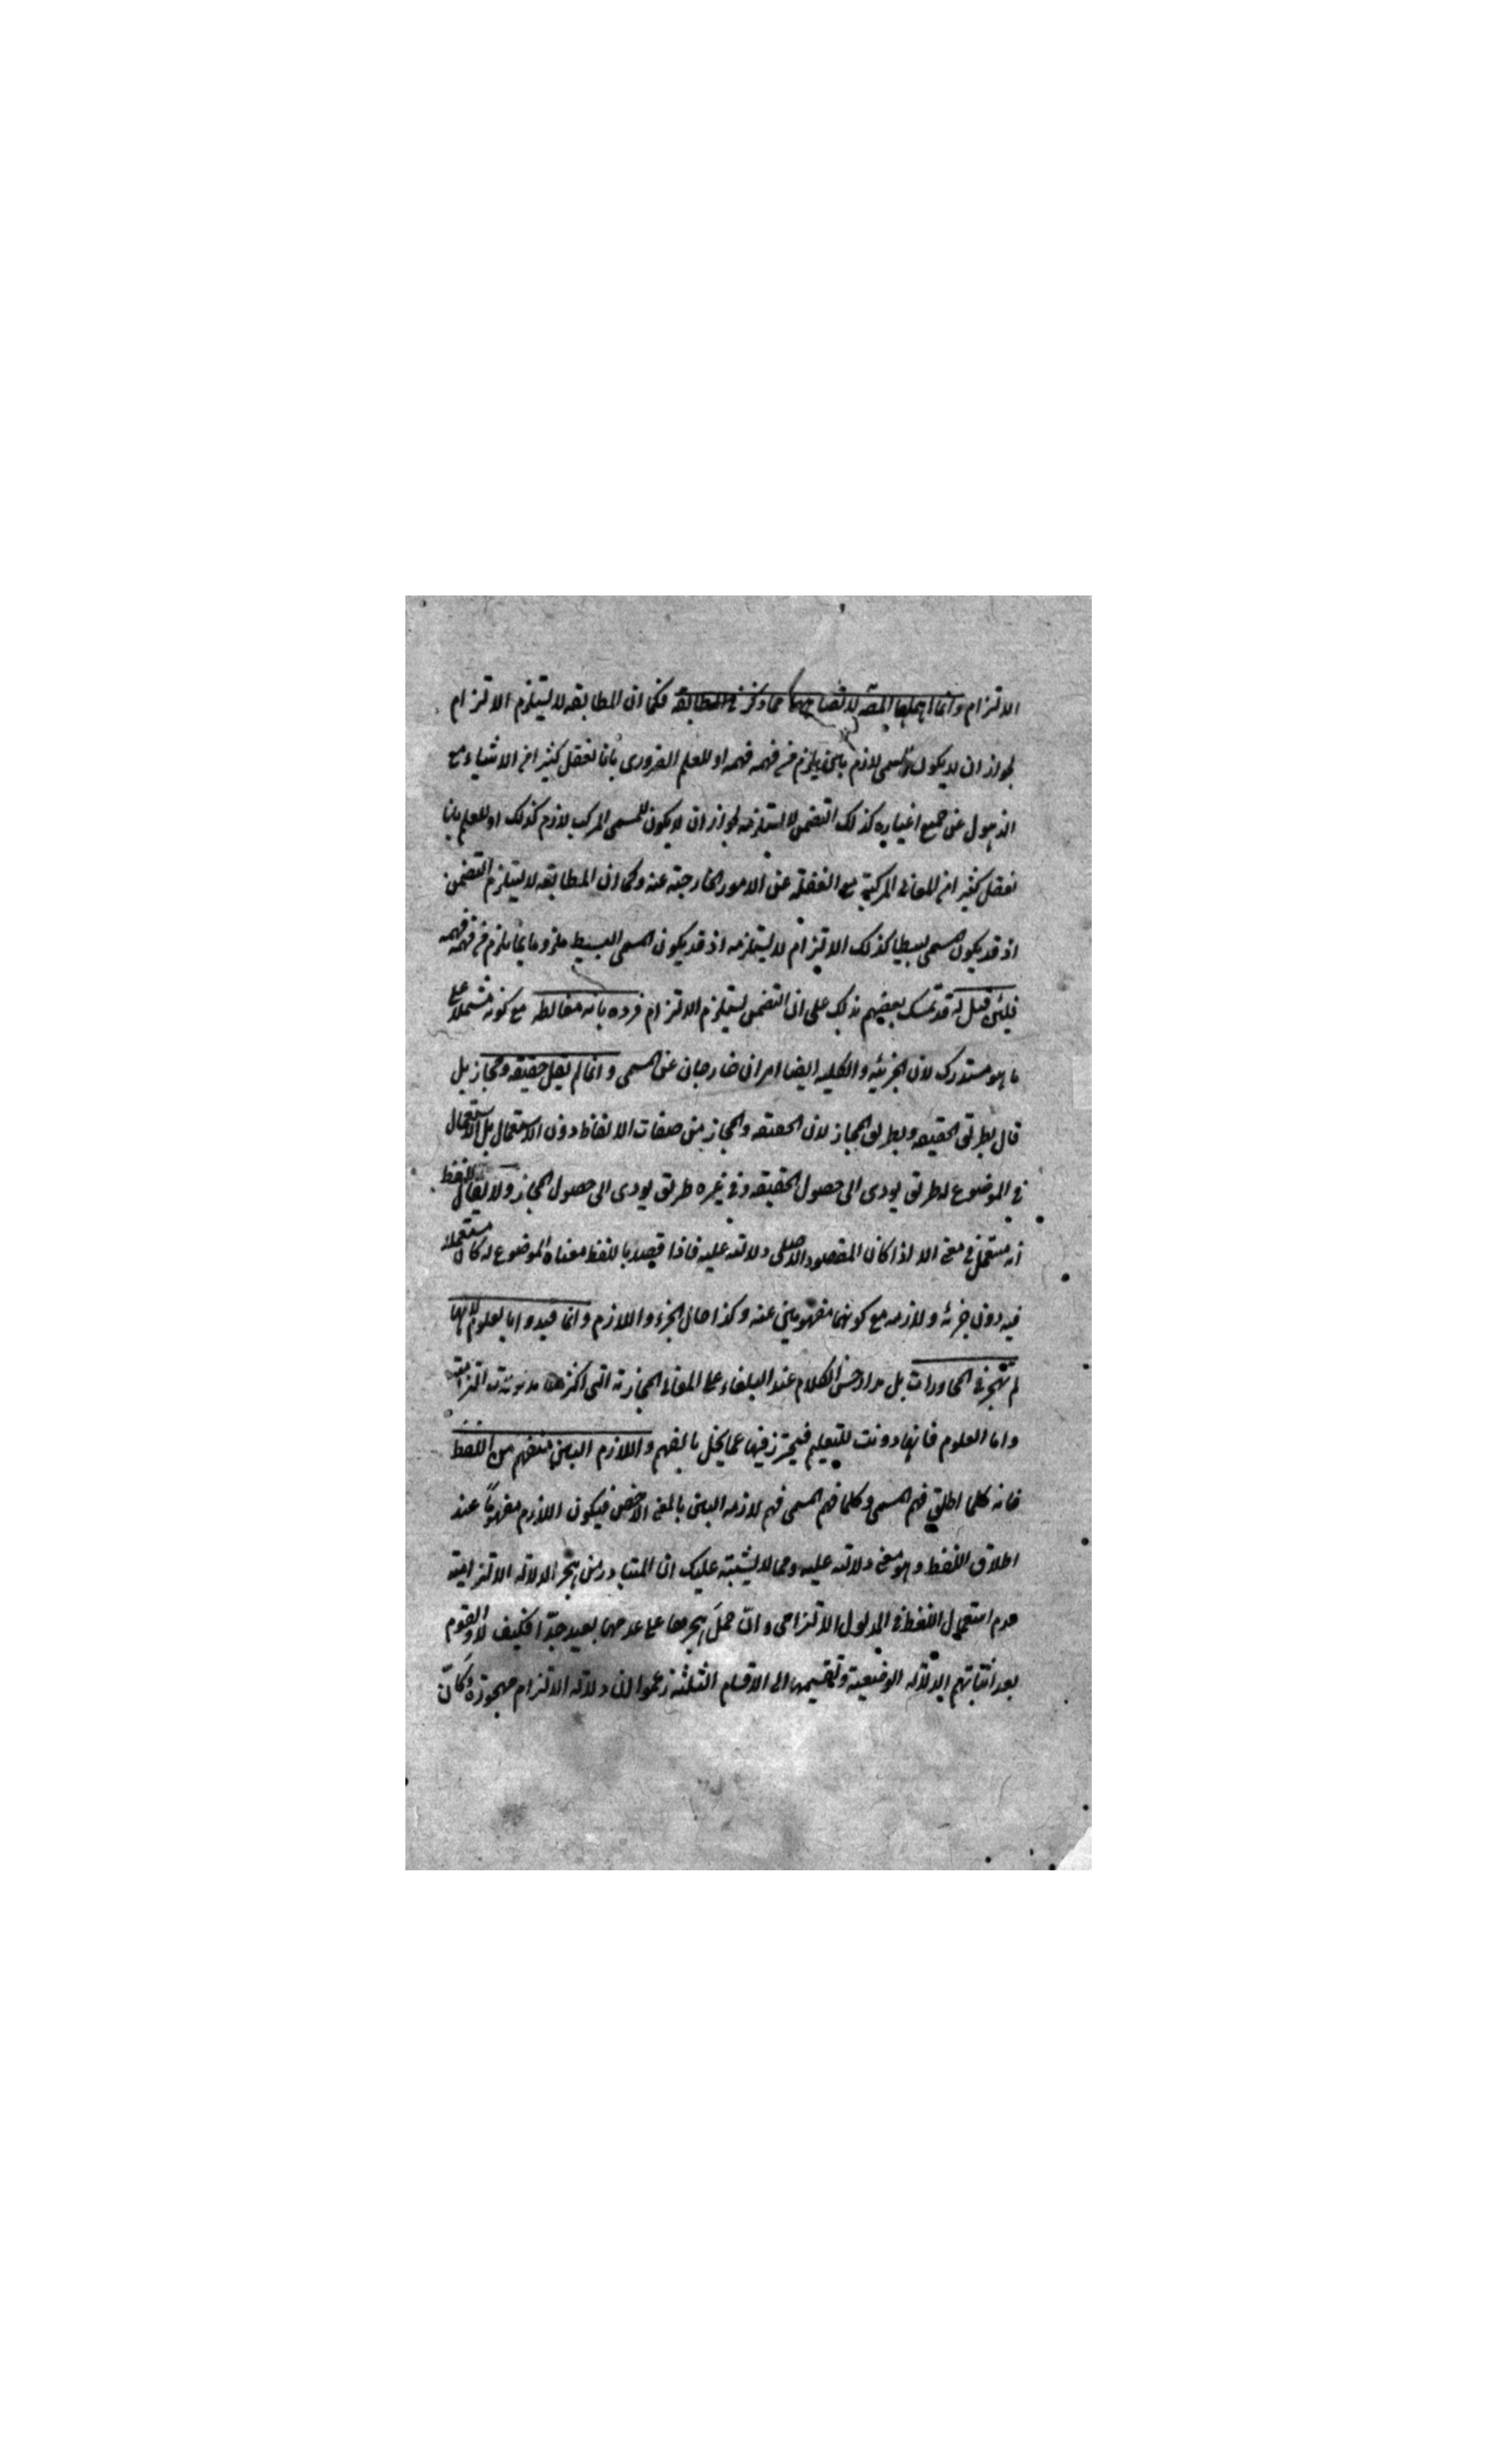 الالتزام وانما اهملها المصّ لاتضاحهما مما ذكر فى المطابقة فكما ان المطابقه لا يستلزم الالتزام
لجواز ان لا يكون للمسمى لازم بيّن يلزم من فهمه فهمه او للعلم الضرورى بانا نعقل كثيرا من الاشياء مع
الذهول عن جميع اغياره كذلك التضمن لا يستلزمه لجواز ان لا يكون للمسمى المركب لازم كذلك او للعلم بانا
نعقل كثيرا من المعانى المركبة مع الغفلة عن الامور الخارجية عنه وكما ان المطابقه لا يستلزم التضمن
اذ قد يكون المسمى بسيطا كذلك الالتزام لا يستلزمه اذ قد يكون المسمى البسيط ملزوما لما يلزم من فهمه فهمه
فلئن قيل انه قد تمسك بعضهم بذلك على ان التضمن يستلزم الالتزام فرده بانه مغالطه مع كونه مشتملا على
ما هو مستدرك لان الجزئيه والكليه ايضا امران خارجان عن المسمى وانما لم يقل حقيقه ومجاز بل
قال بطريق الحقيقه وبطريق المجاز لان الحقيقه والمجاز من صفات الالفاظ دون الاستعمال بل الاستعمال
فى الموضوع له طريق يودى الى حصول الحقيقه وفى غيره طريق يودى الى حصول المجاز ولا يقال للفظ
انه مستعمل فى معنى الا اذا كان المقصود الاصلى دلالته عليه فاذا قصد باللفظ معناه الموضوع له كان مستعملا
فيه دون جزئه ولازمه مع كونهما مفهومين عنه وكذا حال الجزء واللازم وانما قيد وا بالعلوم لانها
لم تهجر فى المحاورات بل مدار حسن الكلام عند البلغاء على المعانى المجازية التى اكثرها مدلولات التزامية
واما العلوم فانها دونت للتعليم فيحترز فيها عما يخل بالفهم واللازم البين منفهم من اللفظ
فانه كلما اطلق فهم المسمى وكلما فهم المسمى فهم لازمه البين بالمعنى الاخص فيكون اللازم مفهومًا عند
اطلاق اللفظ وهو معنى دلالته عليه ومما لا يشتبه عليك ان المتبادر من هجر الدلاله الالتزامية
عدم استعمال اللفظ فى المدلول الالتزامى وان حمل هجرها على عدمها بعيد جدّا فكيف لا والقوم
بعد اثباتهم الدلاله الوضعية وتقسيمها الى الاقسام الثلثه زعموا ان دلاله الالتزام مهجورة وكانّ